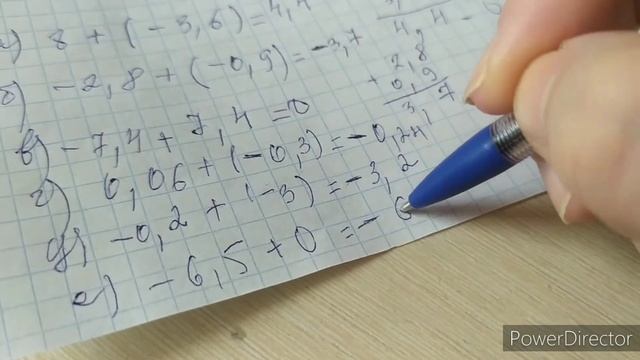 а) 8 + (-3,6) = 4,4
4,4
б) -2,8 + (-0,9) = -3,7
+ 2,8
0,9
3,7
в) -7,4 + 7,4 = 0
г) 0,06 + (-0,3) = -0,24
д) -0,2 + (-3) = -3,2
е) -6,5 + 0 = -6
PowerDirector